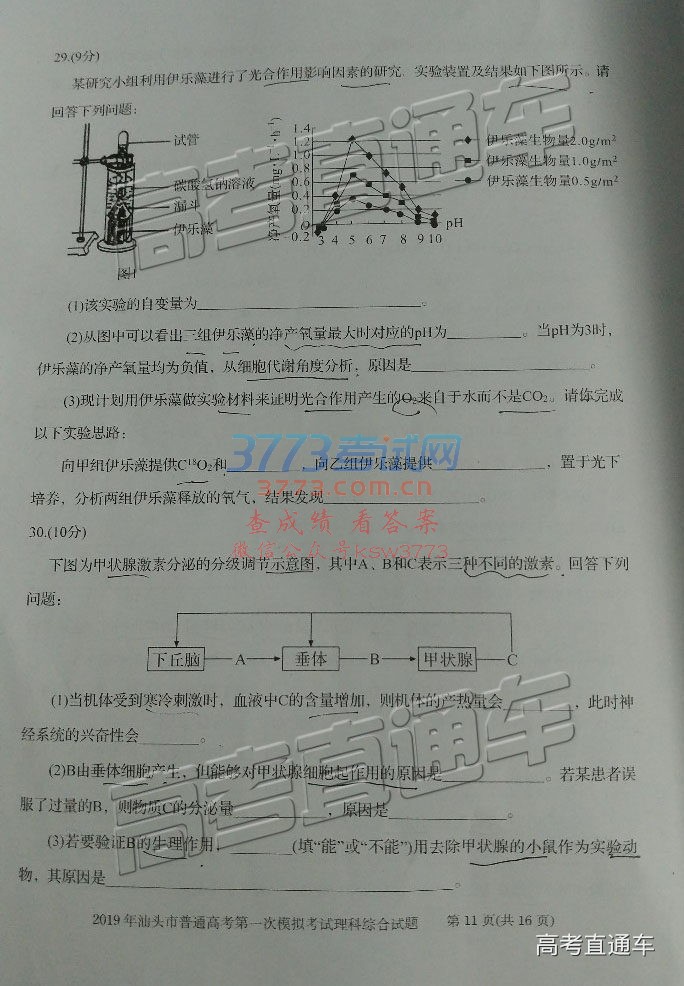 29.(9分)
某研究小组利用伊乐藻进行了光合作用影响因素的研究. 实验装置及结果如下图所示。请
回答下列问题:
试管
碳酸氢钠溶液
漏斗
伊乐藻
图1
1.4
1.2
1.0
0.8
0.6
0.4
0.2
0
0.2
3 4 5 6 7 8 9 10
pH
伊乐藻生物量2.0g/m²
伊乐藻生物量1.0g/m²
伊乐藻生物量0.5g/m²
(1)该实验的自变量为____________。
(2)从图中可以看出三组伊乐藻的净产氧量最大时对应的pH为________。当pH为3时,
伊乐藻的净产氧量均为负值，从细胞代谢角度分析，原因是____________。
(3)现计划用伊乐藻做实验材料来证明光合作用产生的O₂来自于水而不是CO₂。请你完成
以下实验思路:
向甲组伊乐藻提供C¹⁸O₂和________，向乙组伊乐藻提供____________，置于光下
培养，分析两组伊乐藻释放的氧气，结果发现____________。
30.(10分)
下图为甲状腺激素分泌的分级调节示意图，其中A、B和C表示三种不同的激素。回答下列
问题:
下丘脑 A 垂体 B 甲状腺 C
(1)当机体受到寒冷刺激时，血液中C的含量增加，则机体的产热量会________，此时神
经系统的兴奋性会________。
(2)B由垂体细胞产生，但能够对甲状腺细胞起作用的原因是____________。若某患者误
服了过量的B，则物质C的分泌量________，原因是____________。
(3)若要验证B的生理作用，________(填“能”或“不能”)用去除甲状腺的小鼠作为实验动
物，其原因是____________
2019年汕头市普通高考第一次模拟考试理科综合试题 第11页(共16页)
高考直通车
高考直通车
高考直通车
3773考试网
3773.com.cn
查成绩 看答案
微信公众号ksw3773